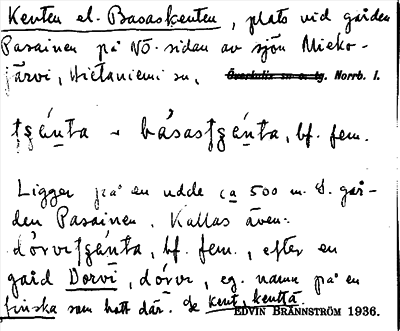 Kenten el. Basaskenten, plats vid gården
Pasainen på NÖ. sidan av sjön Mieko-
järvi, Hietaniemi sn, Överkalix sn o. tg. Norrb. l.
básas
, bf. fem.
Ligger på en udde ca 500 m. S. går-
den Pasainen. Kallas även:
, bf. fem., efter en
gård Dorvi, dórvi, eg. namn på en
finska som hett där. Se kent, kenttä.
EDVIN BRÄNNSTRÖM 1936.